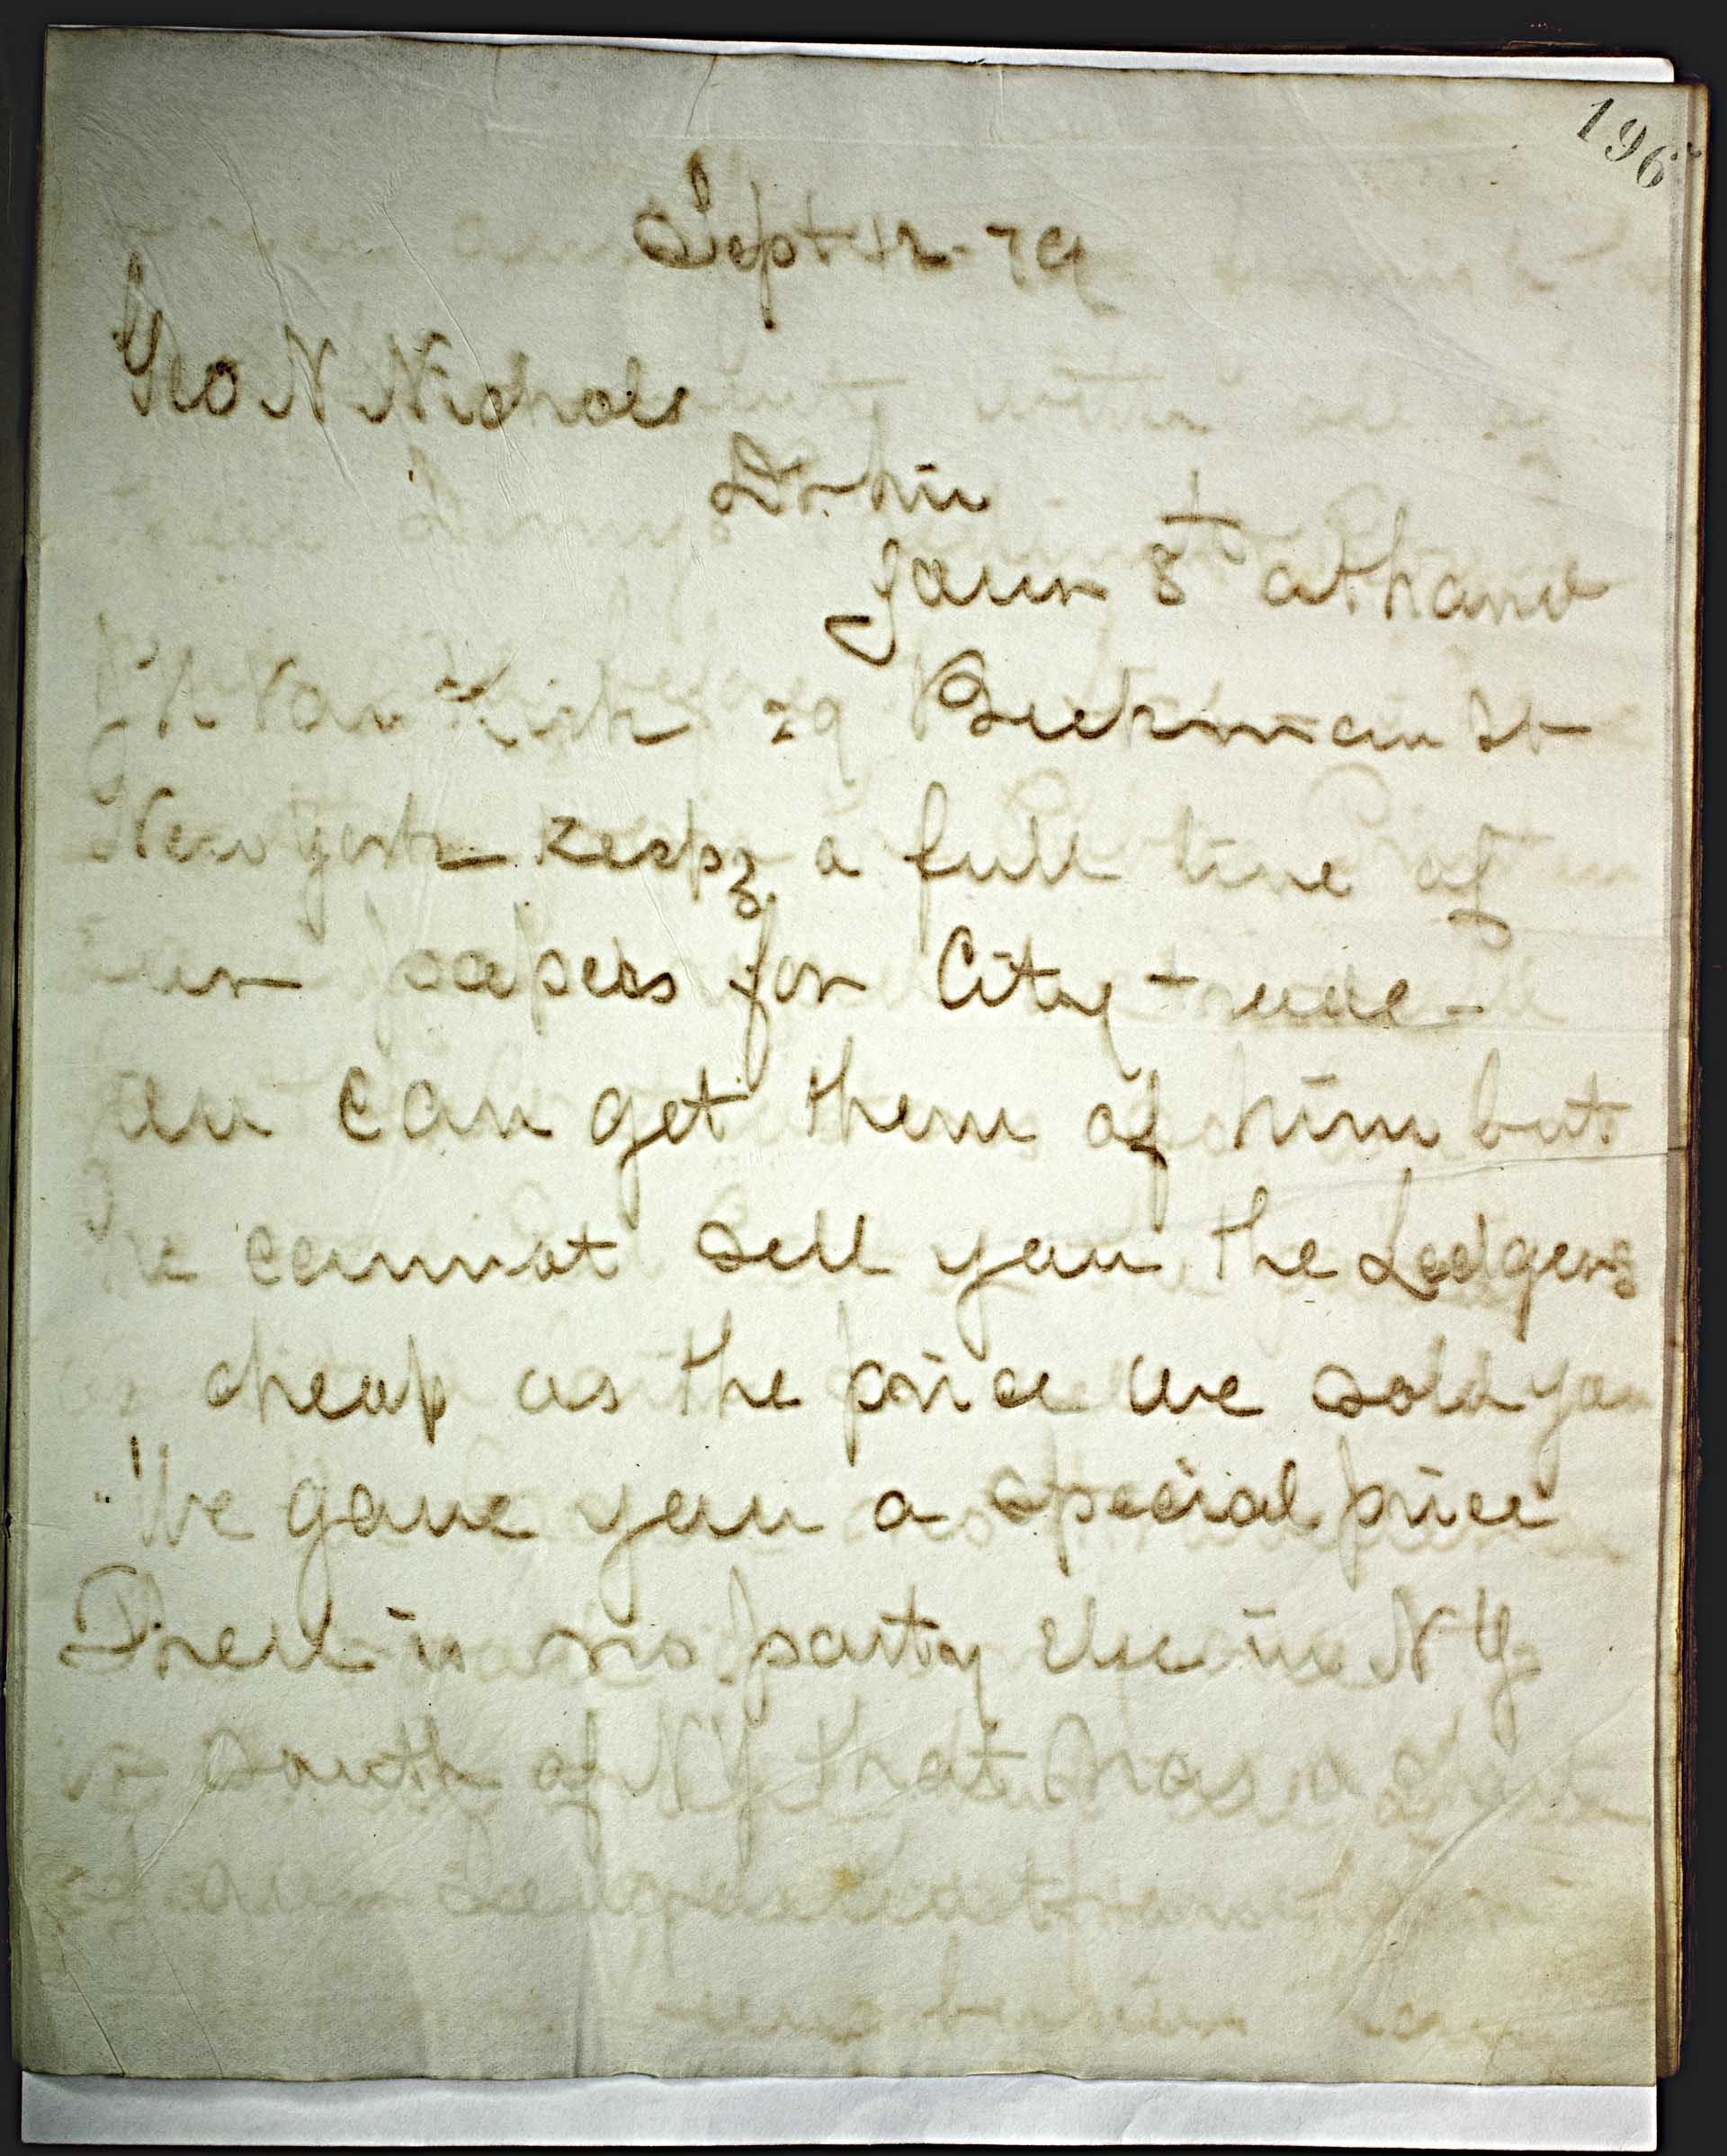 196
Sept 12-79
Geo N Nichols
Dr Sir
Your 8th at hand
29 Beekman St
New York keeps a full line of
our papers for City trade-
You can get them of him but
He cannot sell you the Ledgers
as cheap as the price we sold you
We gave you a special price
There is no party else in N Y
or South of NY that has a
of our